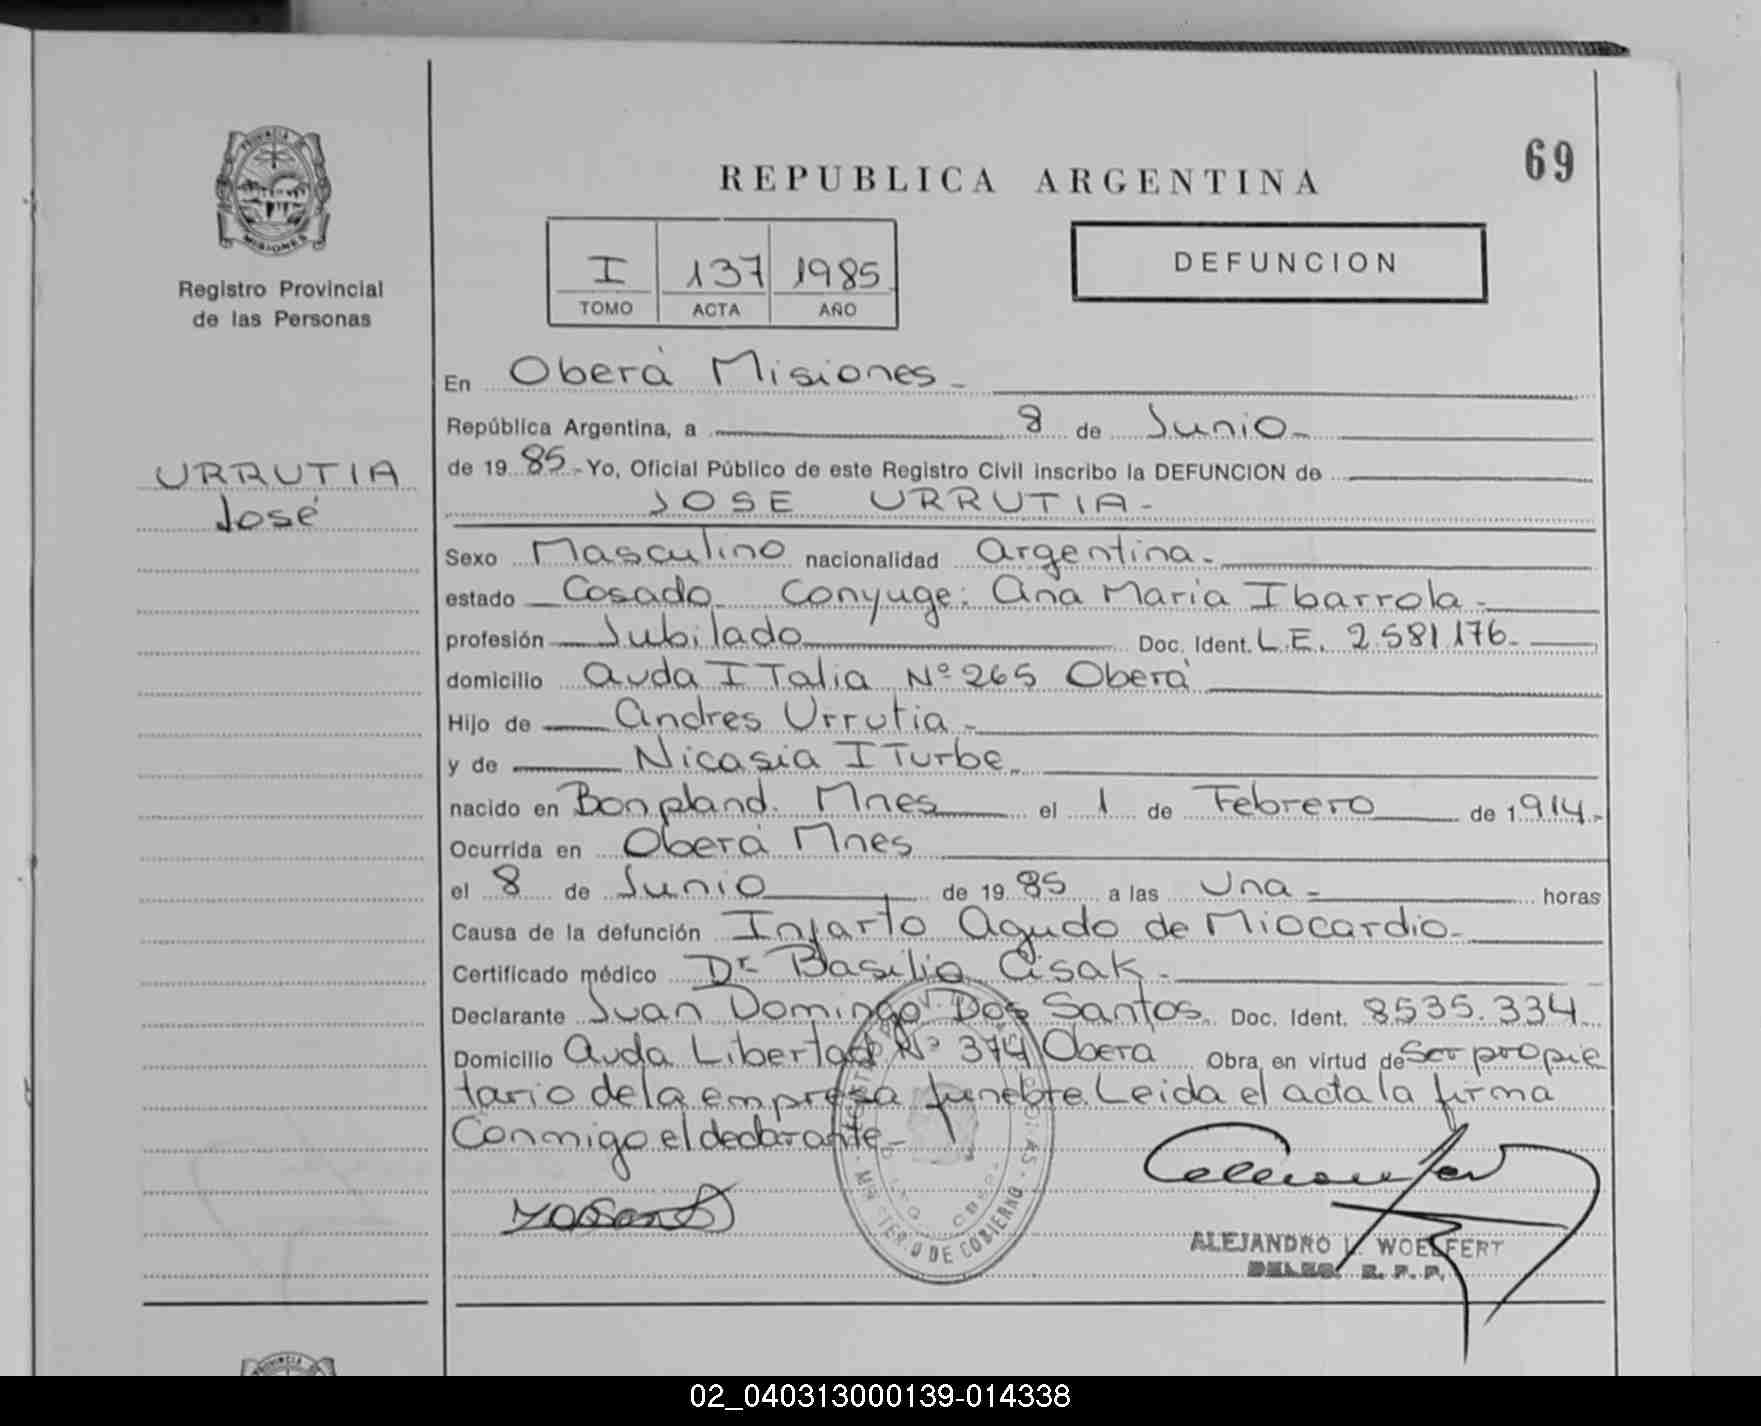 69
REPUBLICA ARGENTINA
PROVINCIA DE
MISIONES
Registro Provincial
de las Personas
I 137 1985
TOMO ACTA AÑO
DEFUNCION
URRUTIA
José
En Oberá Misiones.-
República Argentina, a 8 de Junio-
de 19 85.- Yo, Oficial Público de este Registro Civil inscribo la DEFUNCION de
JOSE URRUTIA-
Sexo Masculino nacionalidad Argentina-
estado Casado Conyuge: Ana Maria Ibarrola-
profesión Jubilado Doc. Ident. L.E. 2.581.176-
domicilio Avda ITalia Nº 265 Oberá
Hijo de Andres Urrutia-
y de Nicasia ITurbe
nacido en Bonpland. Mnes el 1 de Febrero de 1914.-
Ocurrida en Oberá Mnes
el 8 de Junio de 19 85 a las Una - horas
Causa de la defunción Infarto Agudo de Miocardio-
Certificado médico Dr Basilio Cisak-
Declarante Juan Domingo Dos Santos. Doc. Ident. 8535.334
Domicilio Avda Libertad Nº 374 Obera Obra en virtud de Ser propie
tario de la empresa funebre. Leida el acta la firma
Conmigo el declarante-
MINISTERIO DE GOBIERNO
ALEJANDRO L. WOELFERT
DELEG. R. P. P.
PROVINCIA DE
02_040313000139-014338